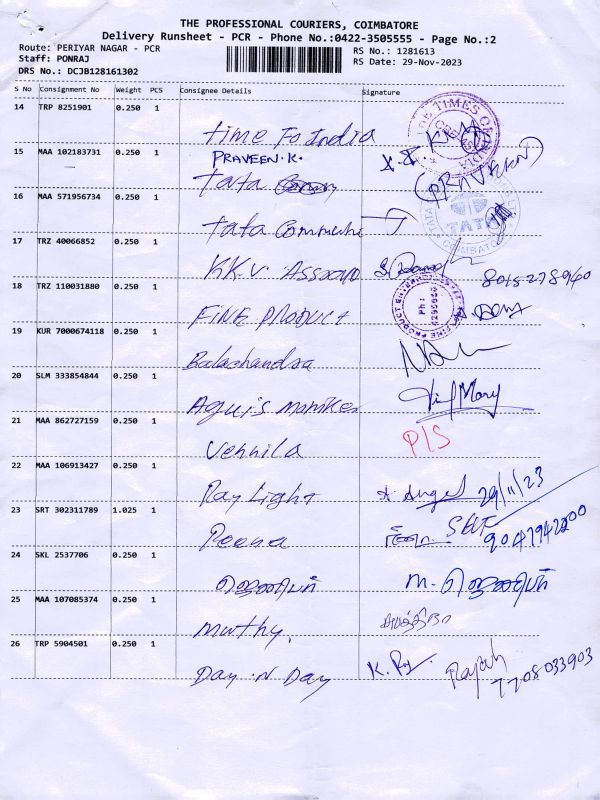 THE PROFESSIONAL COURIERS, COIMBATORE
Delivery Runsheet - PCR - Phone No.:0422-3505555 - Page No.:2
Route: PERIYAR NAGAR - PCR
RS No.: 1281613
Staff: PONRAJ
RS Date: 29-Nov-2023
DRS No.: DCJB128161302
S No Consignment No Weight PCS Consignee Details Signature
14 TRP 8251901 0.250 1
Time To India
15 MAA 102183731 0.250 1
PRAVEEN.K.
(PRAVEEN)
Tata
16 MAA 571956734 0.250 1
Tata
17 TRZ 40066852 0.250 1
K.K.V
8015278940
18 TRZ 110031880 0.250 1
FINE PRODUCT
19 KUR 7000674118 0.250 1
Balachandra
20 SLM 333854844 0.250 1
Mary
21 MAA 862727159 0.250 1
Vennila P/S
22 MAA 106913427 0.250 1
Ray Light A. Angel 29/11/23
23 SRT 302311789 1.025 1
Reena
24 SKL 2537706 0.250 1
ஜெனிபர் M. ஜெனிபர்
25 MAA 107085374 0.250 1
Muthy.
26 TRP 5904501 0.250 1
Day N Day K. Raj. Rajesh
7708033903